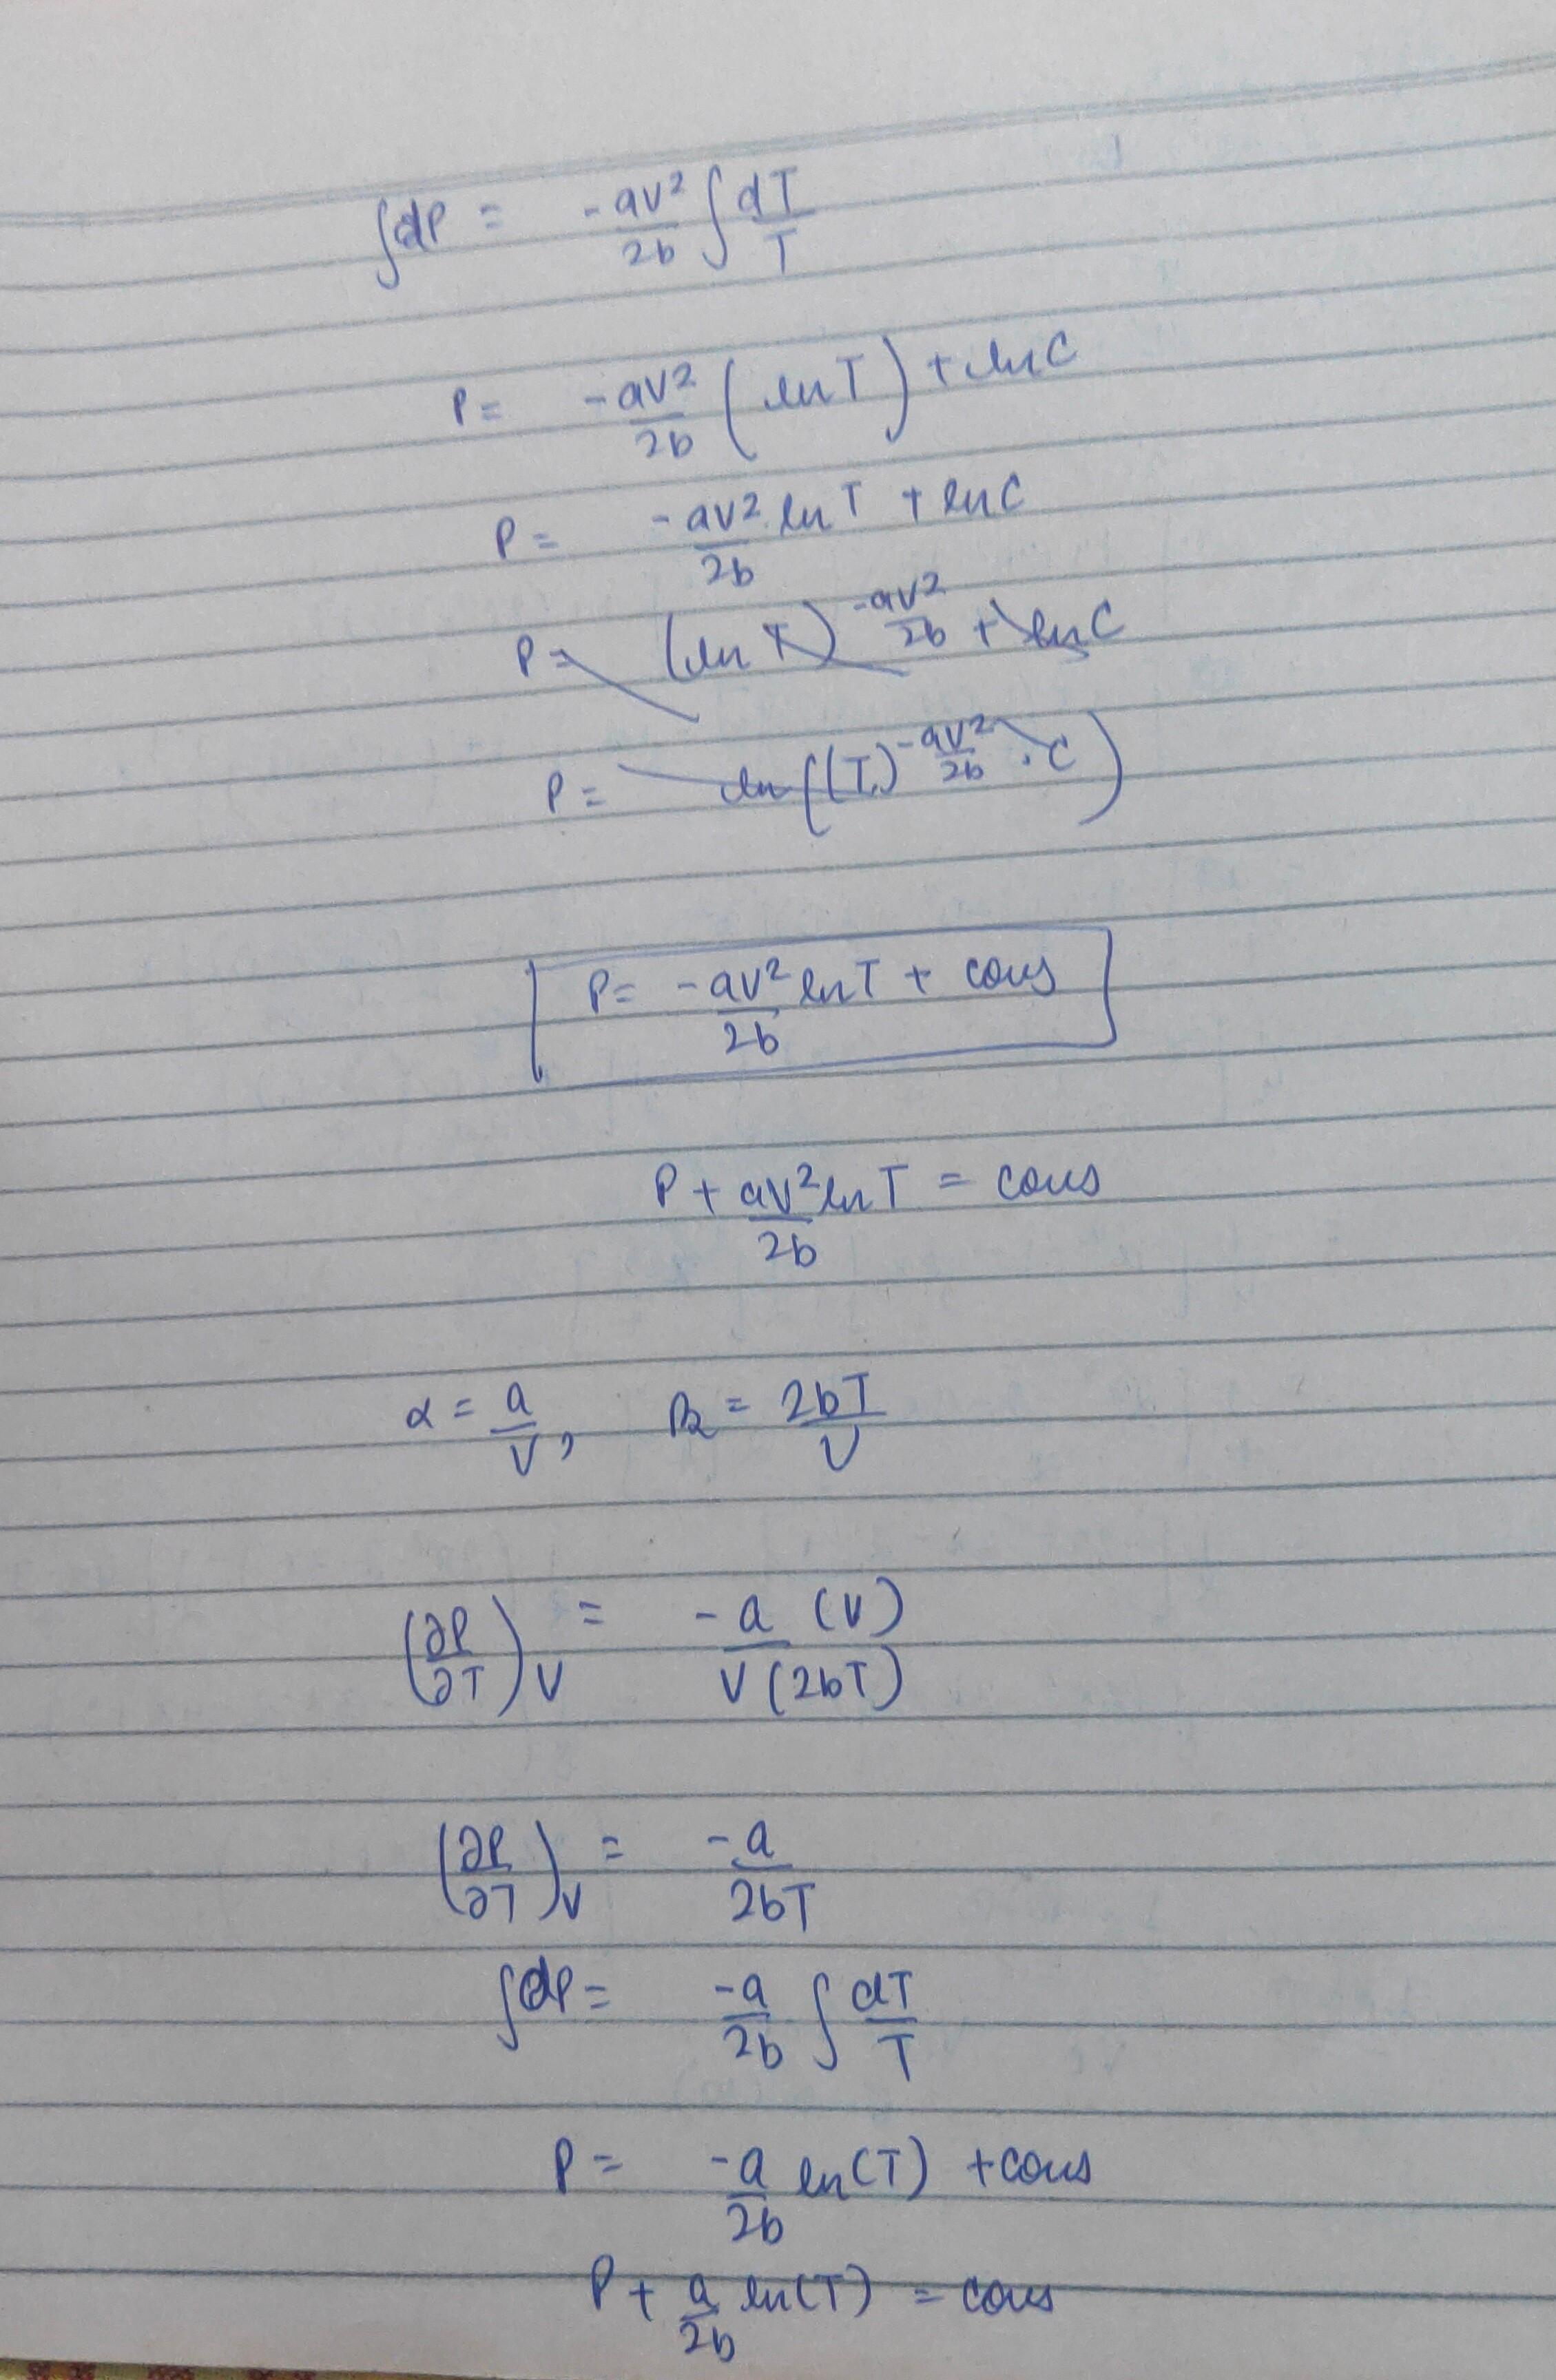 ∫dP = -aV²/2b ∫dT/T
P = -aV²/2b (ln T) + ln C
P = -aV²/2b ln T + ln C
P = (ln T)^(-aV²/2b) + ln C
P = ln((T)^(-aV²/2b) · C)
P = -aV²/2b ln T + cons
P + aV²/2b ln T = cons
α = a/V, β = 2bT/V
(∂P/∂T)V = -a (V)/V(2bT)
(∂P/∂T)V = -a/2bT
∫dP = -a/2b ∫dT/T
P = -a/2b ln(T) + cons
P + a/2b ln(T) = cons